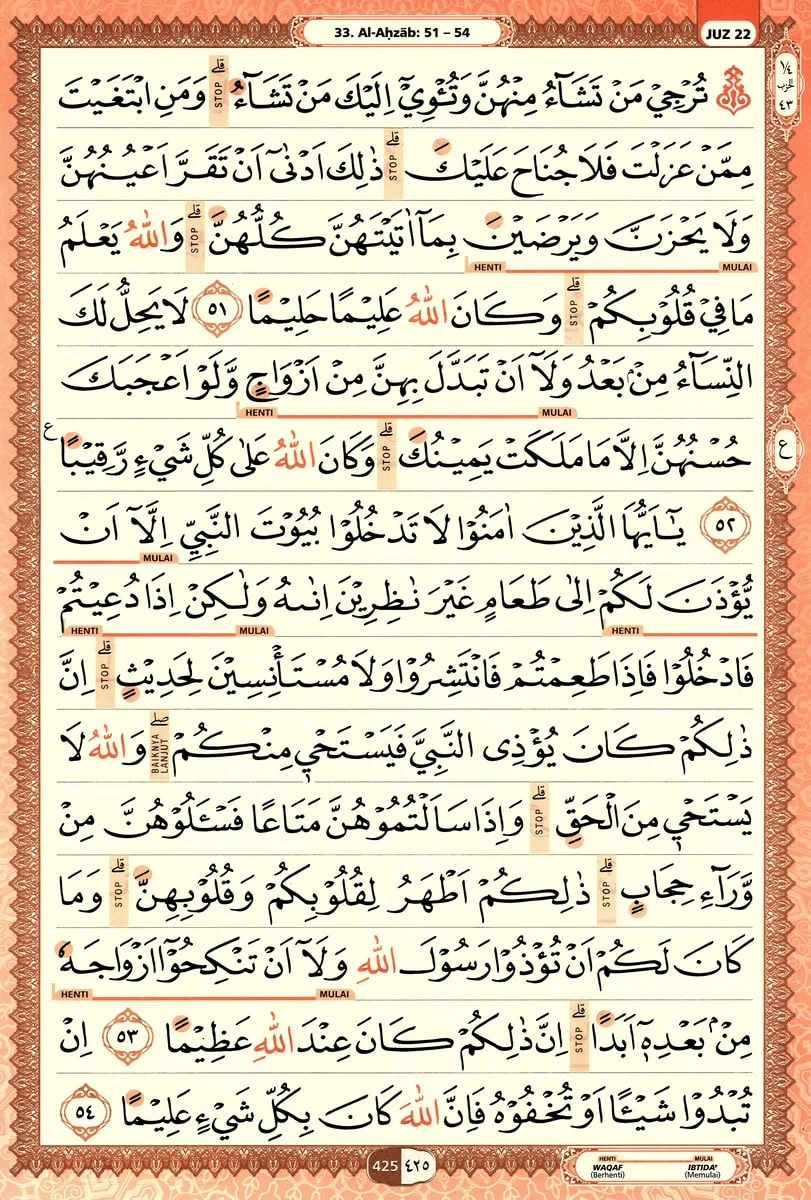 33. Al-Aḥzāb: 51 – 54
JUZ 22
١/٤ الحزب ٤٣
تُرْجِيْ مَنْ تَشَاۤءُ مِنْهُنَّ وَتُـْٔوِيْٓ اِلَيْكَ مَنْ تَشَاۤءُۗ وَمَنِ ابْتَغَيْتَ
قلى STOP
مِمَّنْ عَزَلْتَ فَلَا جُنَاحَ عَلَيْكَۗ ذٰلِكَ اَدْنٰىٓ اَنْ تَقَرَّ اَعْيُنُهُنَّ
قلى STOP
وَلَا يَحْزَنَّ وَيَرْضَيْنَ بِمَآ اٰتَيْتَهُنَّ كُلُّهُنَّۗ وَاللّٰهُ يَعْلَمُ
قلى STOP
HENTI MULAI
مَا فِيْ قُلُوْبِكُمْۗ وَكَانَ اللّٰهُ عَلِيْمًا حَلِيْمًا ٥١ لَا يَحِلُّ لَكَ
قلى STOP
النِّسَاۤءُ مِنْۢ بَعْدُ وَلَآ اَنْ تَبَدَّلَ بِهِنَّ مِنْ اَزْوَاجٍ وَّلَوْ اَعْجَبَكَ
HENTI MULAI
حُسْنُهُنَّ اِلَّا مَا مَلَكَتْ يَمِيْنُكَۗ وَكَانَ اللّٰهُ عَلٰى كُلِّ شَيْءٍ رَّقِيْبًا ع
قلى STOP
ع
٥٢ يٰٓاَيُّهَا الَّذِيْنَ اٰمَنُوْا لَا تَدْخُلُوْا بُيُوْتَ النَّبِيِّ اِلَّآ اَنْ
MULAI
يُّؤْذَنَ لَكُمْ اِلٰى طَعَامٍ غَيْرَ نٰظِرِيْنَ اِنٰىهُ وَلٰكِنْ اِذَا دُعِيْتُمْ
HENTI MULAI HENTI
فَادْخُلُوْا فَاِذَا طَعِمْتُمْ فَانْتَشِرُوْا وَلَا مُسْتَأْنِسِيْنَ لِحَدِيْثٍۗ اِنَّ
قلى STOP
ذٰلِكُمْ كَانَ يُؤْذِى النَّبِيَّ فَيَسْتَحْيٖ مِنْكُمْۖ وَاللّٰهُ لَا
صلى BAIKNYA LANJUT
يَسْتَحْيٖ مِنَ الْحَقِّۗ وَاِذَا سَاَلْتُمُوْهُنَّ مَتَاعًا فَسْـَٔلُوْهُنَّ مِنْ
قلى STOP
وَّرَاۤءِ حِجَابٍۗ ذٰلِكُمْ اَطْهَرُ لِقُلُوْبِكُمْ وَقُلُوْبِهِنَّۗ وَمَا
قلى STOP قلى STOP
كَانَ لَكُمْ اَنْ تُؤْذُوْا رَسُوْلَ اللّٰهِ وَلَآ اَنْ تَنْكِحُوْٓا اَزْوَاجَهٗ
HENTI MULAI
مِنْۢ بَعْدِهٖٓ اَبَدًاۗ اِنَّ ذٰلِكُمْ كَانَ عِنْدَ اللّٰهِ عَظِيْمًا ٥٣ اِنْ
قلى STOP
تُبْدُوْا شَيْـًٔا اَوْ تُخْفُوْهُ فَاِنَّ اللّٰهَ كَانَ بِكُلِّ شَيْءٍ عَلِيْمًا ٥٤
425 ٤٢٥
HENTI MULAI
WAQAF IBTIDA'
(Berhenti) (Memulai)